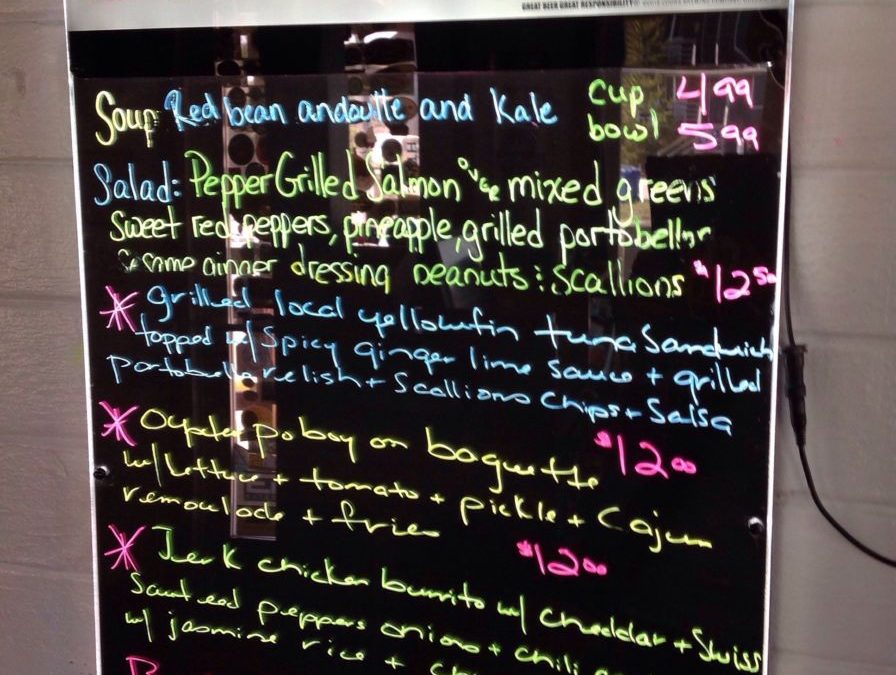 GREAT BEER GREAT RESPONSIBILITY
Soup Red bean andouille and Kale cup 4.99
bowl 5.99
Salad: Pepper Grilled Salmon over mixed greens
Sweet red peppers, pineapple, grilled portobello
Sesame ginger dressing peanuts : Scallions $12.50
* grilled local yellowfin tuna Sandwich
topped w/ Spicy ginger lime sauce + grilled
portobello relish + Scallions Chips + Salsa
* Oyster po boy on baguette $12.00
w/ lettuce + tomato + pickle + Cajun
remoulade + fries $12.00
* Jerk chicken burrito w/ cheddar + Swiss
Sauteed peppers onions + chili
w/ jasmine rice +